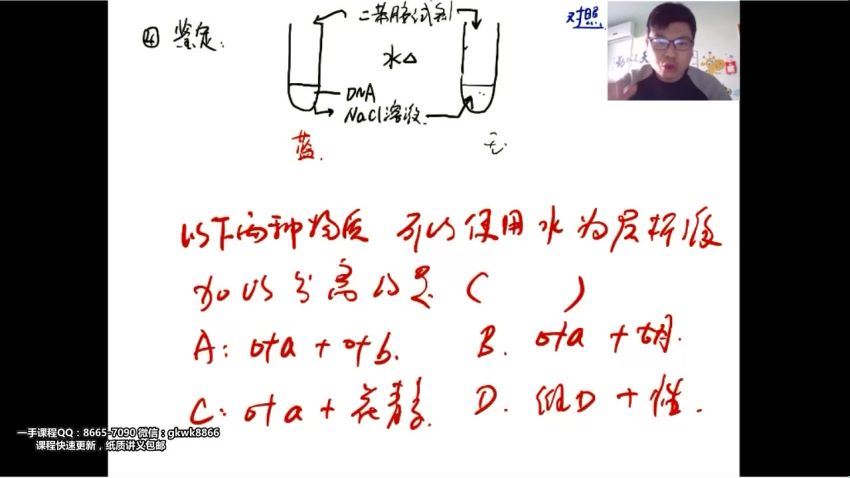 ④ 鉴定:
二苯胺试剂
对照
水△
DNA
NaCl溶液
蓝.
无
以下两种物质 可以使用水为层析液
加以分离的是 ( )
A: 叶a + 叶b. B. 叶a + 胡.
C: 叶a + 花青素 D.
一手课程QQ:8665-7090 微信:gkwk8866
课程快速更新,纸质讲义包邮